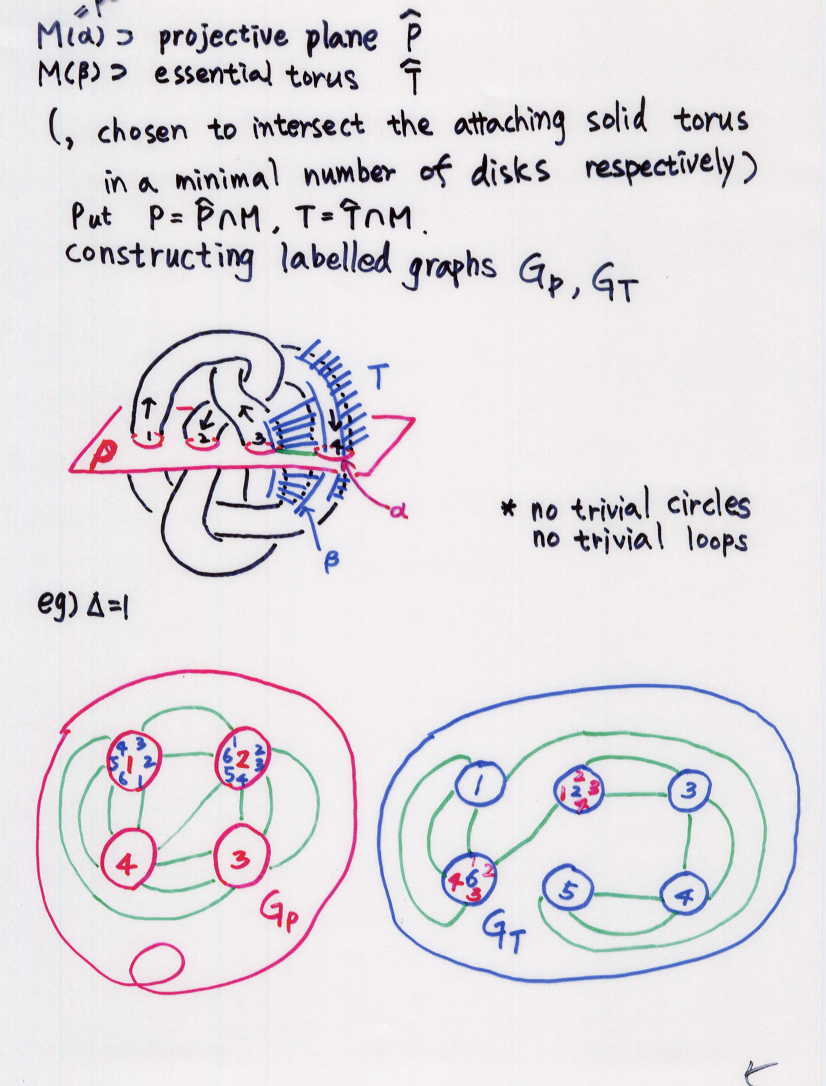 M(α) ⊃ projective plane P̂
M(β) ⊃ essential torus T̂
(, chosen to intersect the attaching solid torus
in a minimal number of disks respectively)
Put P = P̂∩M, T = T̂∩M.
constructing labelled graphs G_P, G_T
T
1 2 3 4
P
α
β
* no trivial circles
no trivial loops
eg) Δ=1
4 3 1 2
5 1 2 6 2 3
6 1 5 4
4 3
G_P
1 2 3
1 2 3
2
1 2
4 6
3
5 4
G_T